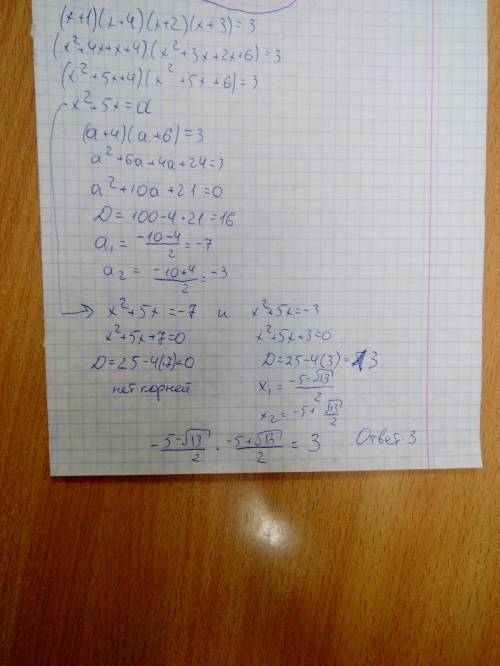 (x+1)(x+4)(x+2)(x+3)=3
(x²+4x+x+4)(x²+3x+2x+6)=3
(x²+5x+4)(x²+5x+6)=3
x²+5x=a
(a+4)(a+6)=3
a²+6a+4a+24=3
a²+10a+21=0
D=100-4·21=16
a₁=(-10-4)/2=-7
a₂=(-10+4)/2=-3
x²+5x=-7 и x²+5x=-3
x²+5x+7=0 x²+5x+3=0
D=25-4(7)<0 D=25-4(3)=13
нет корней x₁=(-5-√13)/2
x₂=-5+√13/2
-5-√13/2 · (-5+√13)/2 = 3 Ответ: 3